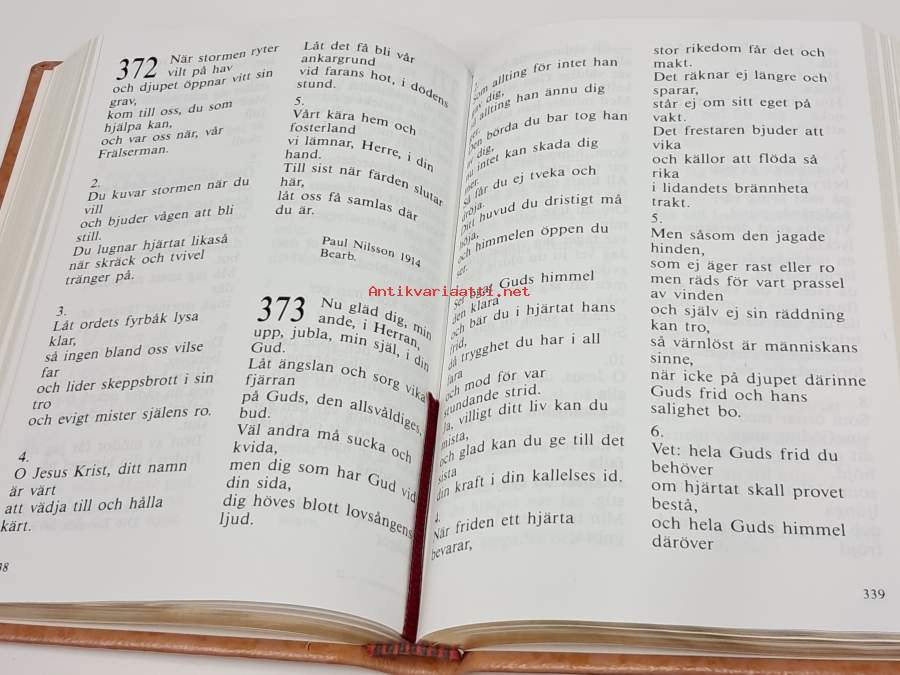 372
När stormen ryter
vilt på hav
och djupet öppnar vitt sin
grav,
kom till oss, du som
hjälpa kan,
och var oss när, vår
Frälserman.
2.
Du kuvar stormen när du
vill
och bjuder vågen att bli
still.
Du lugnar hjärtat likaså
när skräck och tvivel
tränger på.
3.
Låt ordets fyrbåk lysa
klar,
så ingen bland oss vilse
far
och lider skeppsbrott i sin
tro
och evigt mister själens ro.
4.
O Jesus Krist, ditt namn
är vårt
att vädja till och hålla
kärt.
38
Låt det få bli vår
ankargrund
vid farans hot, i dödens
stund.
5.
Vårt kära hem och
fosterland
vi lämnar, Herre, i din
hand.
Till sist när färden slutar
här,
låt oss få samlas där
du är.
Paul Nilsson 1914
Bearb.
373
Nu gläd dig, min
ande, i Herran,
upp, jubla, min själ, i din
Gud.
Låt ängslan och sorg vika
fjärran
på Guds, den allsvåldiges,
bud.
Väl andra må sucka och
kvida,
men dig som har Gud vid
din sida,
dig höves blott lovsångens
ljud.
som allting för intet han
gav dig,
allting han ännu dig
ger.
börda du bar tog han
av dig,
nu intet kan skada dig
mer.
Så får du ej tveka och
dröja.
Ditt huvud du dristigt må
höja,
och himmelen öppen du
ser.
Guds himmel
den klara
och bär du i hjärtat hans
frid,
då trygghet du har i all
fara
och mod för var
stundande strid.
Ja, villigt ditt liv kan du
mista,
och glad kan du ge till det
sista
din kraft i din kallelses id.
4.
När friden ett hjärta
bevarar,
stor rikedom får det och
makt.
Det räknar ej längre och
sparar,
står ej om sitt eget på
vakt.
Det frestaren bjuder att
vika
och källor att flöda så
rika
i lidandets brännheta
trakt.
5.
Men såsom den jagade
hinden,
som ej äger rast eller ro
men räds för vart prassel
av vinden
och själv ej sin räddning
kan tro,
så värnlöst är människans
sinne,
när icke på djupet därinne
Guds frid och hans
salighet bo.
6.
Vet: hela Guds frid du
behöver
om hjärtat skall provet
bestå,
och hela Guds himmel
däröver
339
Antikvariaatti.net